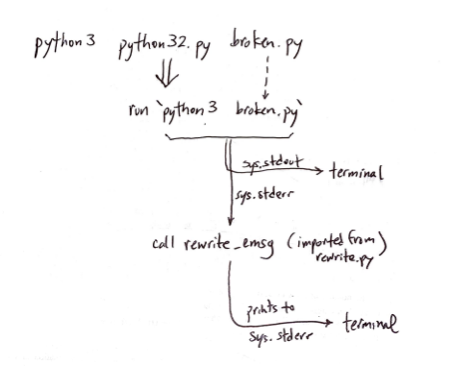 python3 python32.py broken.py
run `python3 broken.py`
sys.stdout
terminal
sys.stderr
call rewrite_emsg (imported from
rewrite.py)
prints to
sys.stderr
terminal